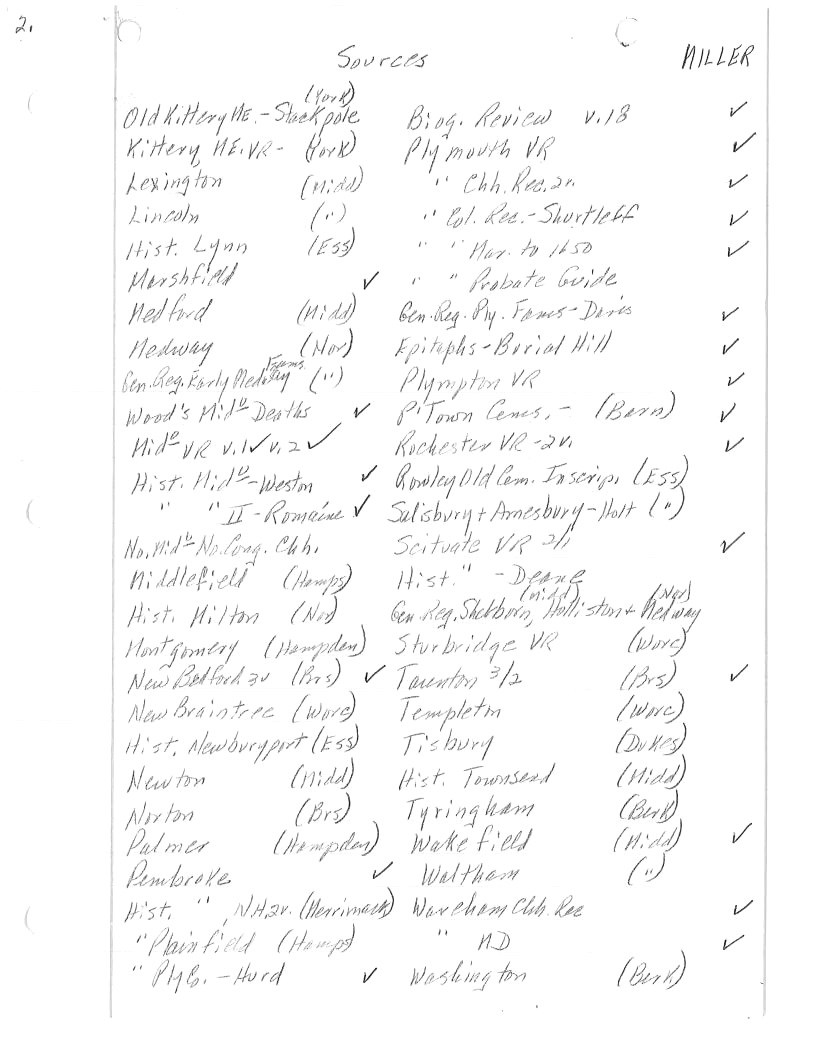 2.
Sources MILLER
(York)
Old Kittery ME. - Stackpole
Kittery, ME. VR - (York)
Lexington (Midd)
Lincoln (")
Hist. Lynn (Ess)
Marshfield ✓
Medford (Midd)
Medway (Nor)
Fams.
Gen. Reg. Early Medway (")
Wood's Midᵒ Deaths ✓
Midᵒ VR v.1 ✓ v.2 ✓
Hist. Midᵒ - Weston ✓
" " II - Romaine ✓
No. Midᵒ - No. Cong. Chh.
Middlefield (Hamps)
Hist. Milton (Nor)
Montgomery (Hampden)
New Bedford 3v (Brs) ✓
New Braintree (Worc)
Hist. Newburyport (Ess)
Newton (Midd)
Norton (Brs)
Palmer (Hampden)
Pembroke ✓
Hist. " , N.H. 2v. (Merrimack)
" Plainfield (Hamps)
" Ply Co. - Hurd ✓
Biog. Review v.18 ✓
Plymouth VR ✓
" Chh. Rec. 2v. ✓
" Col. Rec. - Shurtleff ✓
" " Mar. to 1650 ✓
" " Probate Guide
Gen. Reg. Ply. Fams - Davis ✓
Epitaphs - Burial Hill ✓
Plympton VR ✓
P'Town Cems. - (Barn) ✓
Rochester VR - 2v. ✓
Rowley Old Cem. Inscrip. (Ess)
Salisbury + Amesbury - Hoit (")
Scituate VR 2/1 ✓
Hist. " - Deane
(Midd) (Nor)
Gen. Reg. Sherborn, Holliston + Medway
Sturbridge VR (Worc)
Taunton 3/2 (Brs) ✓
Templeton (Worc)
Tisbury (Dukes)
Hist. Townsend (Midd)
Tyringham (Berk)
Wakefield (Midd) ✓
Waltham (")
Wareham Chh. Rec ✓
" MD ✓
Washington (Berk)